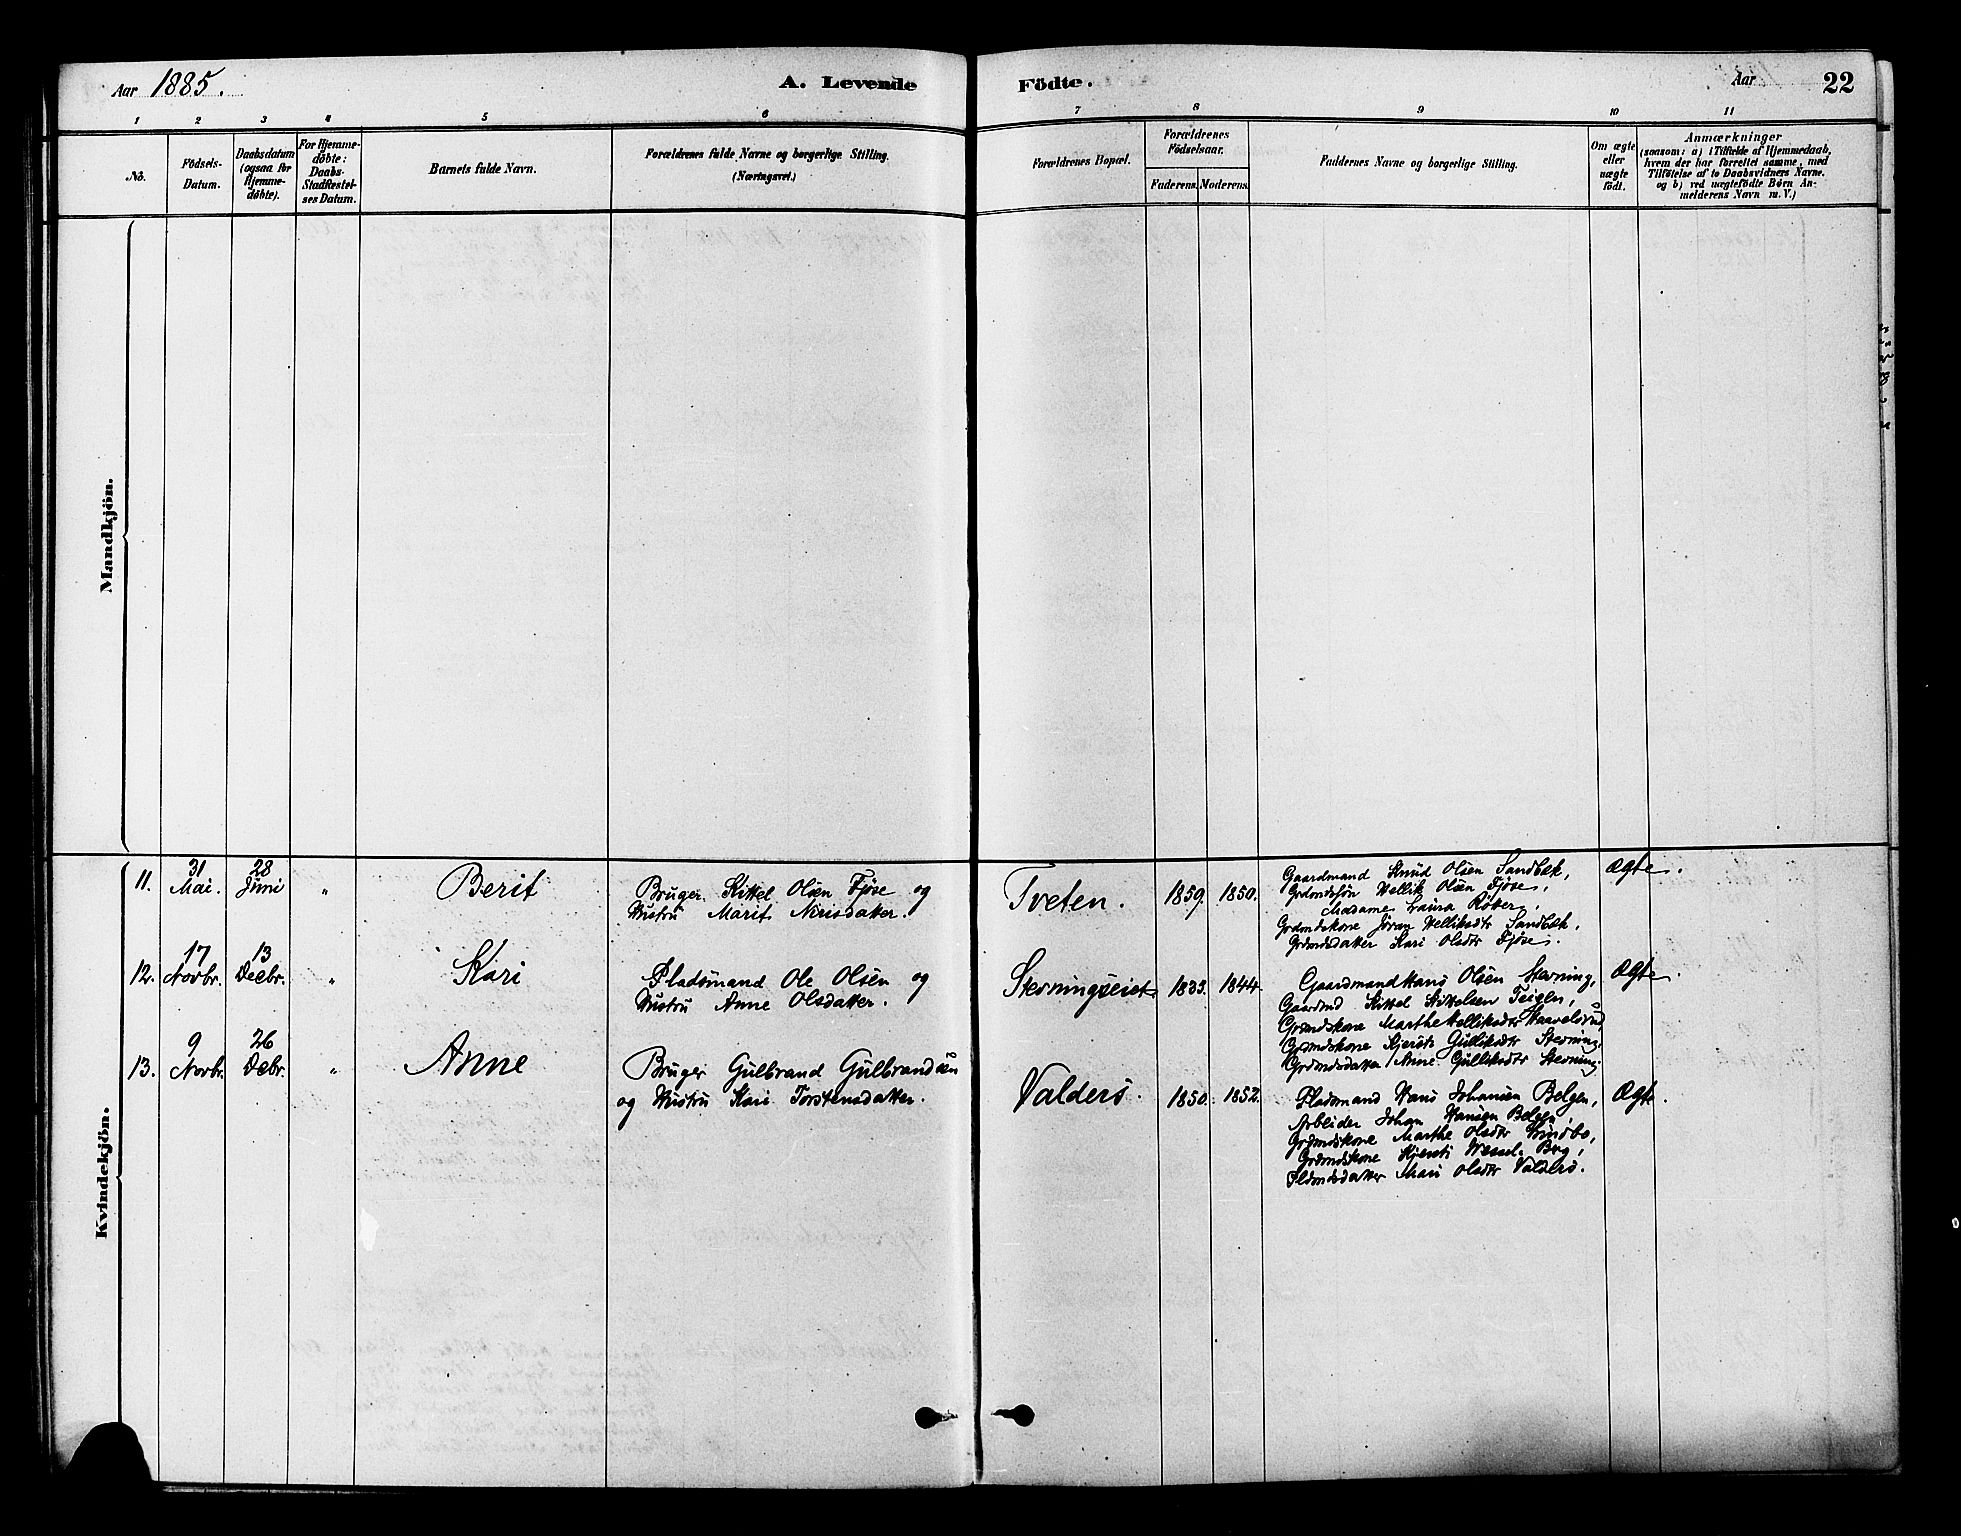 Aar 1885.
A. Levende Födte.
Aar
22
1 2 3 4 5 6 7 8 9 10 11
No.
Födsels-
Datum.
Daabsdatum
(ogsaa for
Hjemme-
döbte).
For Hjemme-
döbte:
Daabs-
Stadfæstel-
ses Datum.
Barnets fulde Navn.
Forældrenes fulde Navne og borgerlige Stilling.
(Næringsvei.)
Forældrenes Bopæl.
Forældrenes
Födselsaar.
Faderens. Moderens.
Faddernes Navne og borgerlige Stilling.
Om ægte
eller
uægte
födt.
Anmærkninger
(saasom: a) i Tilfælde af Hjemmedaab,
hvem der har forrettet samme, med
Tilföielse af to Daabsvidners Navne.
og b) ved uægtefödte Börn An-
melderens Navn m. V.)
Mandkjön.
Kvindekjön.
11.
31
Mai.
28
Juni
"
Berit
Bruger Kittel Olsen Fjöse og
Hustru Marit Nirisdatter.
Tveten.
1859. 1850.
Gaardmand Knud Olsen Sandbæk,
Grdmdssön Hellik Olsen Fjöse,
Madame Laura
Grdmdskone Jöran Helliksdtr Sandbæk,
Grdmdsdatter Kari Olsdtr Fjöse.
Ægte.
12.
17
Novbr.
13
Decbr.
"
Kari
Pladsmand Ole Olsen og
Hustru Anne Olsdatter.
Stevningseiet.
1833. 1844.
Gaardmand Hans Olsen Stevning,
Gaardmd Kittel Kittelsen Teigen,
Grdmdskone Marthe Helliksdtr
Grdmdskone Kjersti Gulliksdtr Stevning
Grdmdsdatter Anne Gulliksdtr Stevning.
Ægte.
13.
9
Novbr.
26
Debr.
"
Anne
Bruger Gulbrand Gulbrandsen
og Hustru Kari Torstensdatter.
Valders.
1850. 1852.
Pladsmand Hans Johansen Bolgen,
Arbeider Johan Hansen Bolgen,
Grdmdskone Marthe Olsdtr
Grdmdskone Kjersti Wessel. Berg,
Pldmdsdatter Mari Olsdtr Valders.
Ægte.